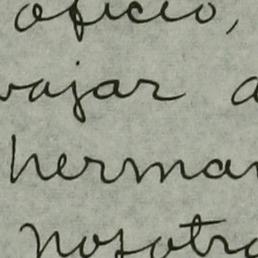 oficio,
vajar a
herman
nosotro